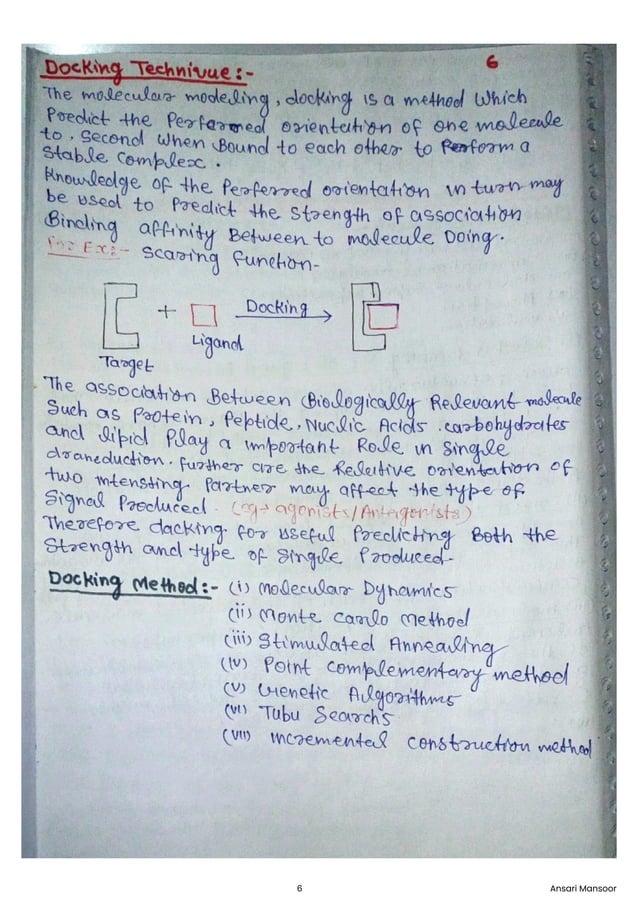 6
Docking Technivue :-
The molecular modeling, docking is a method Which
Predict the Perfaromed orientation of one molecule
to, Second When Bound to each other to Perform a
Stable Complex.
Knowledge of the Perferred orientation in turn may
be used to Predict the Strength of association
Binding affinity Between to molecule Doing.
For Ex:- Scaring function-
+ Docking
Ligand
Target
The association Between (Biologically Relevant molecule
Such as Protein, Peptide, Nuclic Acids. carbohydrates
and lipid Play a important Role in Single
draneduction, further are the Relative orientation of
two intensting Partner may affect the type of
Signal Produced. (eg→ agonists/Antagonists)
Therefore dacking for useful Predicting Both the
Strength and type of Single Produced-
Docking Method :- (i) Molecular Dynamics
(ii) Monte Carlo Method
(iii) Stimulated Annealing
(iv) Point Complementary method
(v) Genetic Algorithms
(vi) Tubu Searchs
(vii) Incremental Construction method
6 Ansari Mansoor